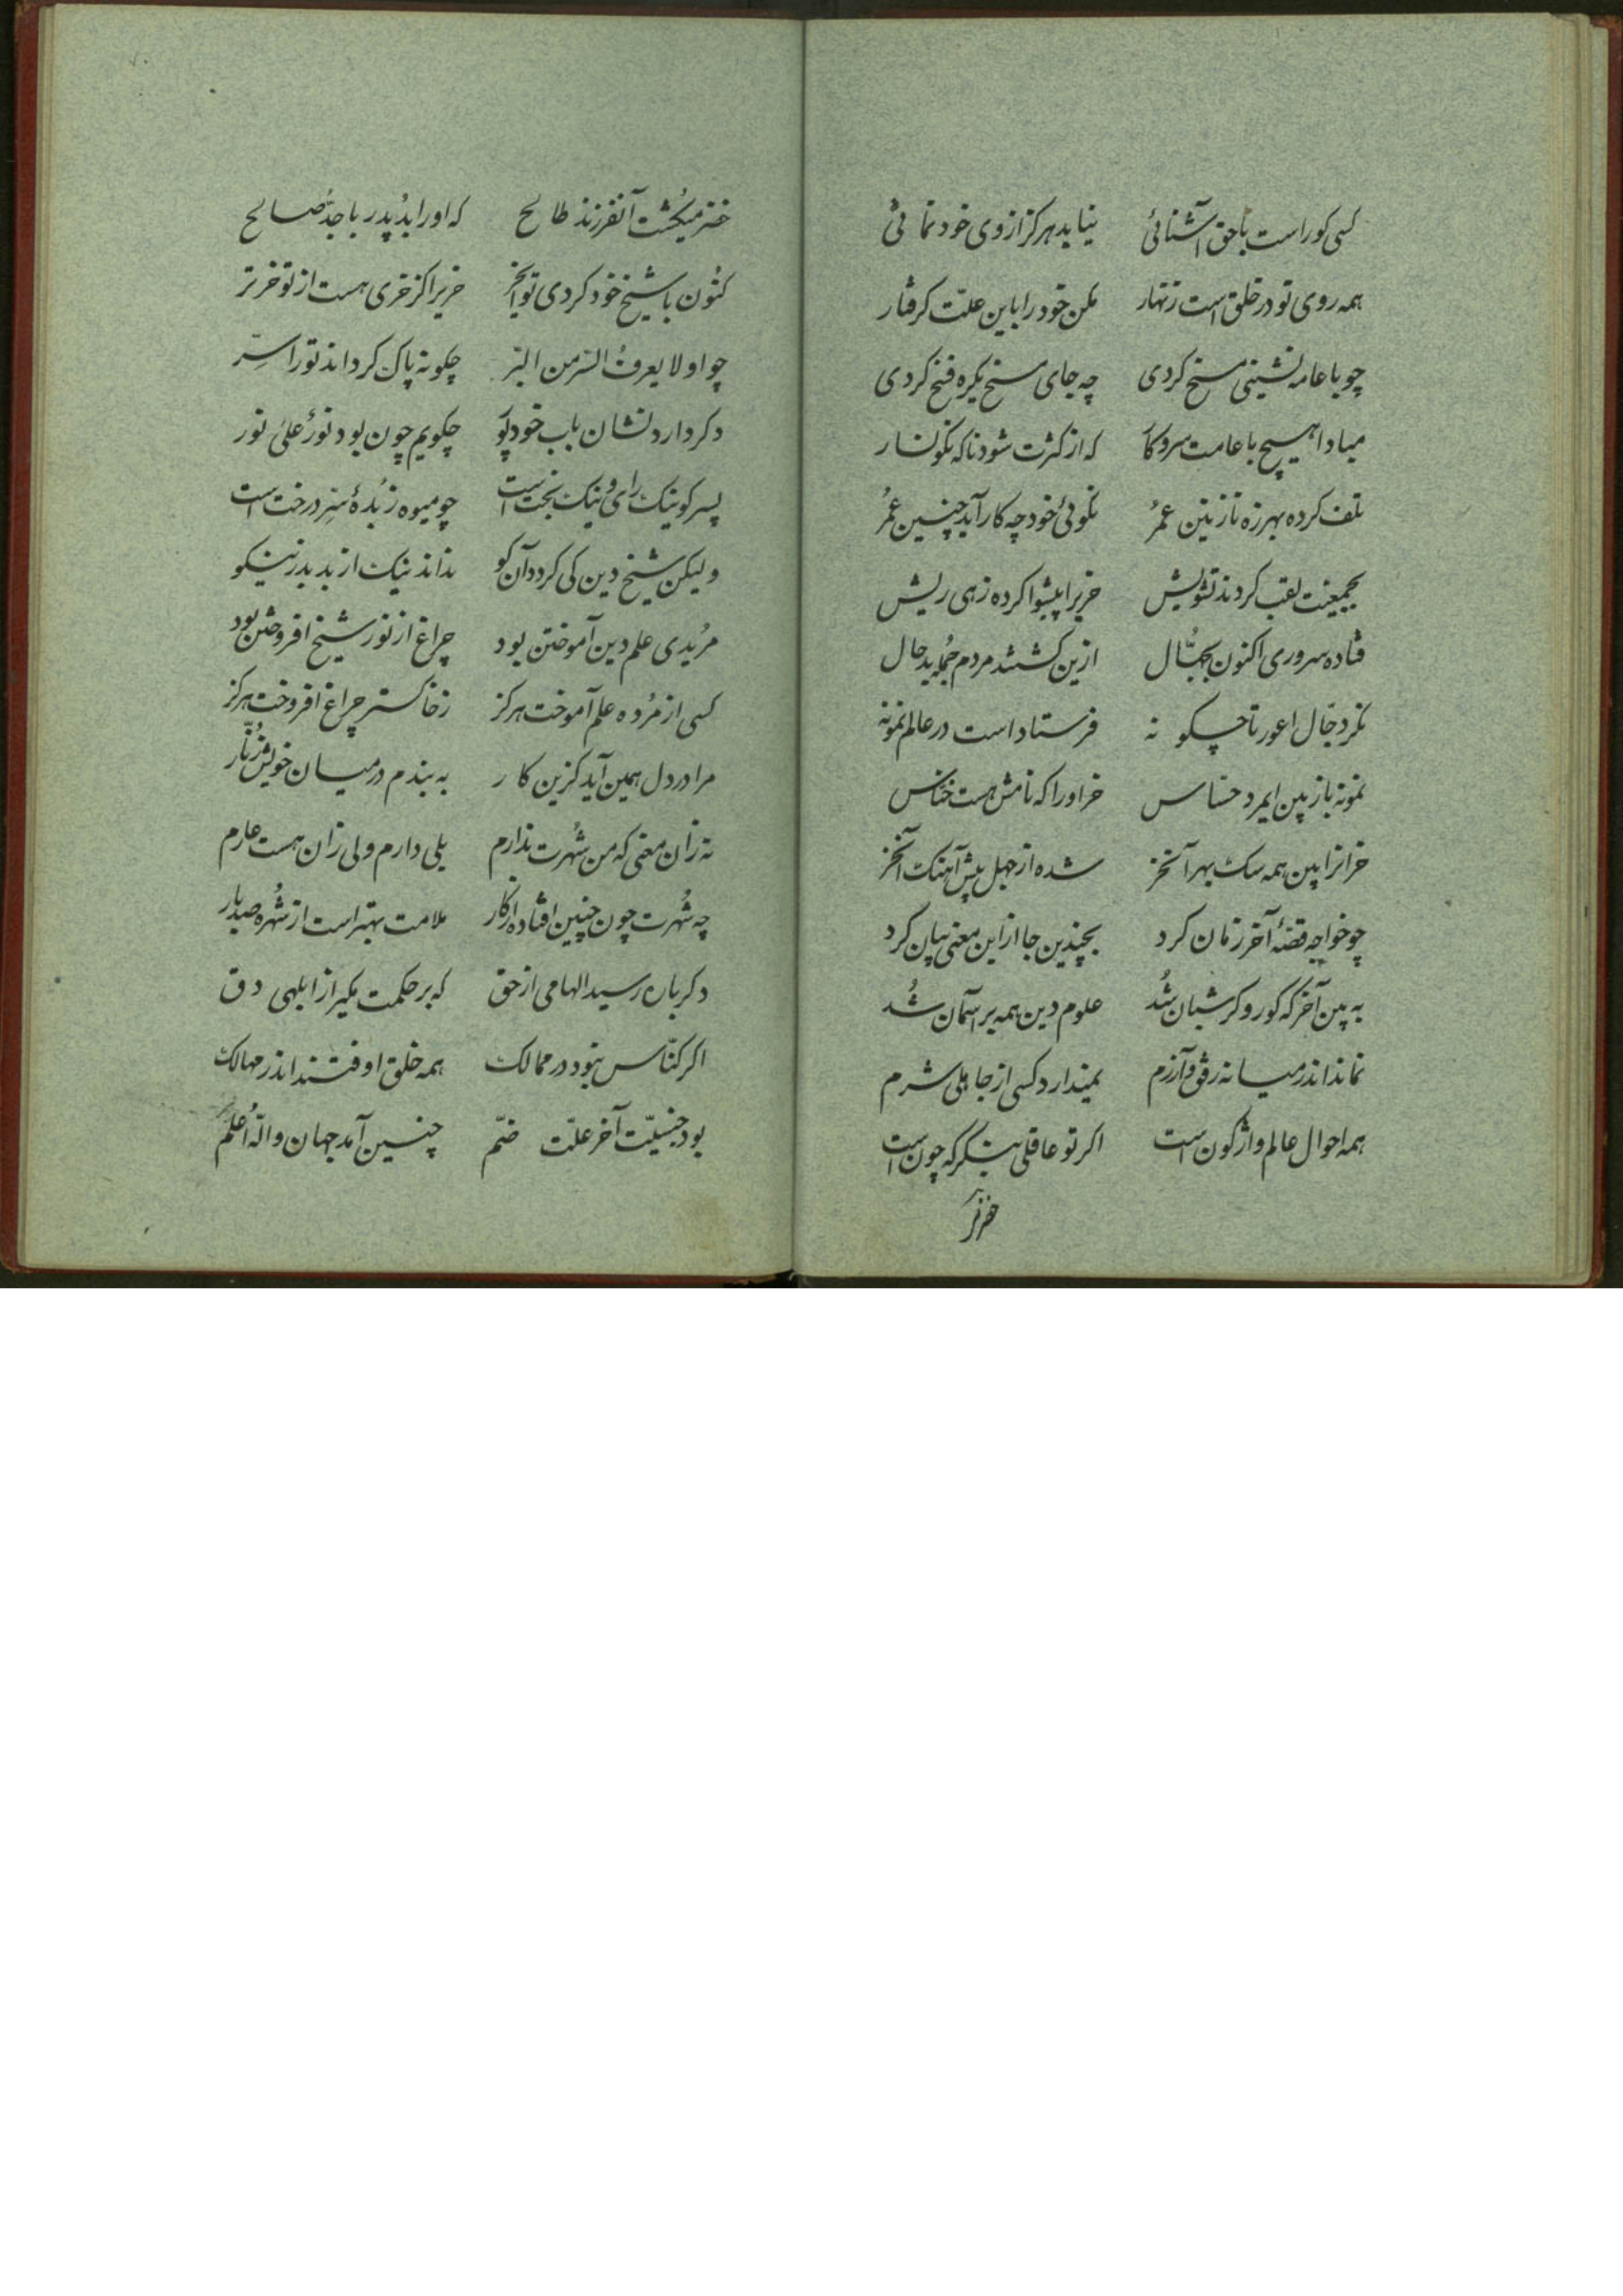 کسی کو راست با حق آشنائی نیاید هرکز از وی خود نمائی
همه روی تو در خلق است زنهار مکن خود را باین علت کرفتار
چو با عامه نشینی مسخ کردی چه جای مسخ یکره فسخ کردی
مبادا هیچ با عامت سر و کار که از کثرت شود ناکه نکونسار
تلف کرده بهرزه نازنین عمر نکوئی خود چه کار آید چنین عمر
بجمعیت لقب کردند تشویش خریرا پیشوا کرده زهی ریش
فتاده سروری اکنون بجهّال ازین کشتند مردم جمله بد حال
نکر دجّال اعور تا چکونه فرستاد است در عالم نمونه
نمونه باز بین ایمرد حساس خر او را که نامش هست خنّاس
خرانرا بین همه سک بهر آنخر شده از جهل پیش آهنک آنخر
چو خواجه قصّهٔ آخر زمان کرد بچندین جا از این معنی بیان کرد
به بین آخر که کور و کر شبان شُد علوم دین همه بر آسمان شُد
نماند اندر میانه رفق و آزرم نمیدارد کسی از جاهلی شرم
همه احوال عالم واژکون است اکر تو عاقلی بنکر که چون است
خضر
خضر میکُشت آنفرزند طالح که او را بُد پدر با جدّ صالح
کنُون با شیخ خود کردی تو ایخر خریرا کز خری هست از تو خرتر
چو او لا یعرفُ الهرّ من البرّ چکونه پاک کرداند تو را سِرّ
و کر دارد نشان باب خود پُور چکویم چون بود نورٌ علیٰ نور
پسر کو نیک رای و نیک بخت است چو میوه زُبدهٔ سِرّ درخت است
ولیکن شیخ دین کی کردد آن کو نداند نیک از بد بد ز نیکو
مرُیدی علم دین آموختن بود چراغ از نور شیخ افروختن بود
کسی از مرُده علم آموخت هرکز زخاکستر چراغ افروخت هرکز
مرا در دل همین آید کزین کار به بندم در میان خویش زُنّار
نه زان معنی که من شُهرت ندارم بلی دارم ولی زان هست عارم
چه شُهرت چون چنین افتاده از کار ملامت بهتر است از شُهره صد بار
دکر باره رسید الهامی از حق که بر حکمت مکیر از ابلهی دق
اکر کنّاس نبود در ممالک همه خلق اوفتند اندر مهالک
بود جنسیّت آخر علّت ضمّ چنین آمد جهان والله اعُلم